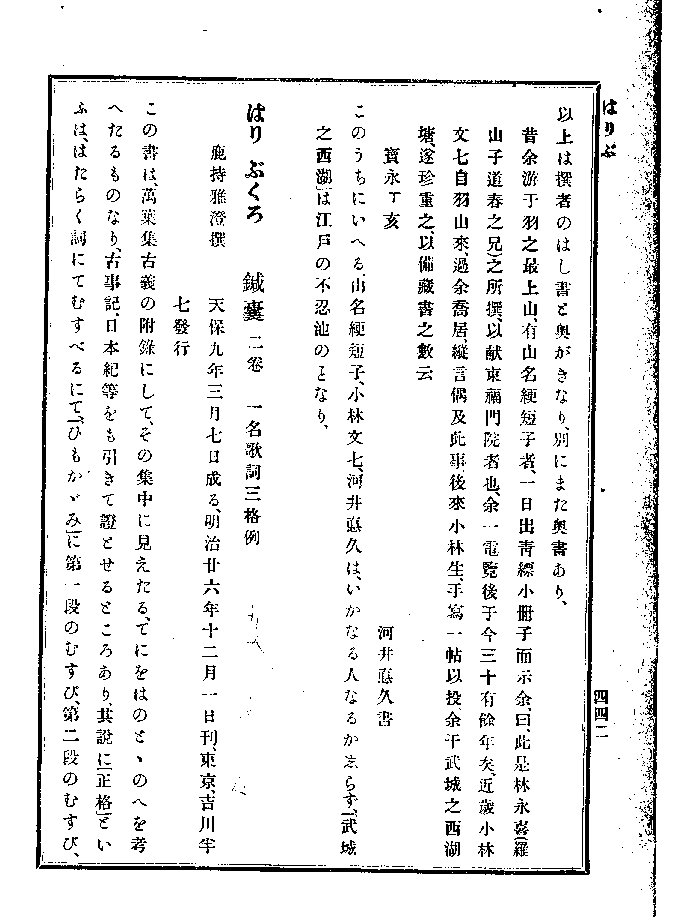 はりぶ
四四二
以上は撰者のはし書と奥がきなり、別にまた奥書あり、
昔余游于羽之最上山、有山名綆短子者、一日出靑縹小册子而示余、曰、此是林永喜(羅
山子道春之兄)之所撰、以献東福門院者也、余一電覽後于今三十有餘年矣、近歲小林
文七自羽山來、過余喬居、縱言偶及此事後來小林生、手寫一帖以投余于武城之西湖
塘、遂珍重之、以備藏書之數云
寶永丁亥
河井惪久書
このうちにいへる、山名綆短子、小林文七、河井惪久は、いかなる人なるか志らず、「武城
之西湖」は江戸の不忍池のことなり、
はりぶくろ 鍼囊 二卷 一名歌詞三格例
鹿持雅澄撰 天保九年三月七日成る、明治廿六年十二月一日刊、東京、吉川半
七發行
この書は、萬葉集古義の附錄にして、その集中に見えたる、てにをはのとゝのへを考
へたるものなり、古事記、日本紀等をも引きて證とせるところあり、其說に「正格」とい
ふは、はたらく詞にてむすべるにて、「ひもかゞみ」に第一段のむすび、第二段のむすび、